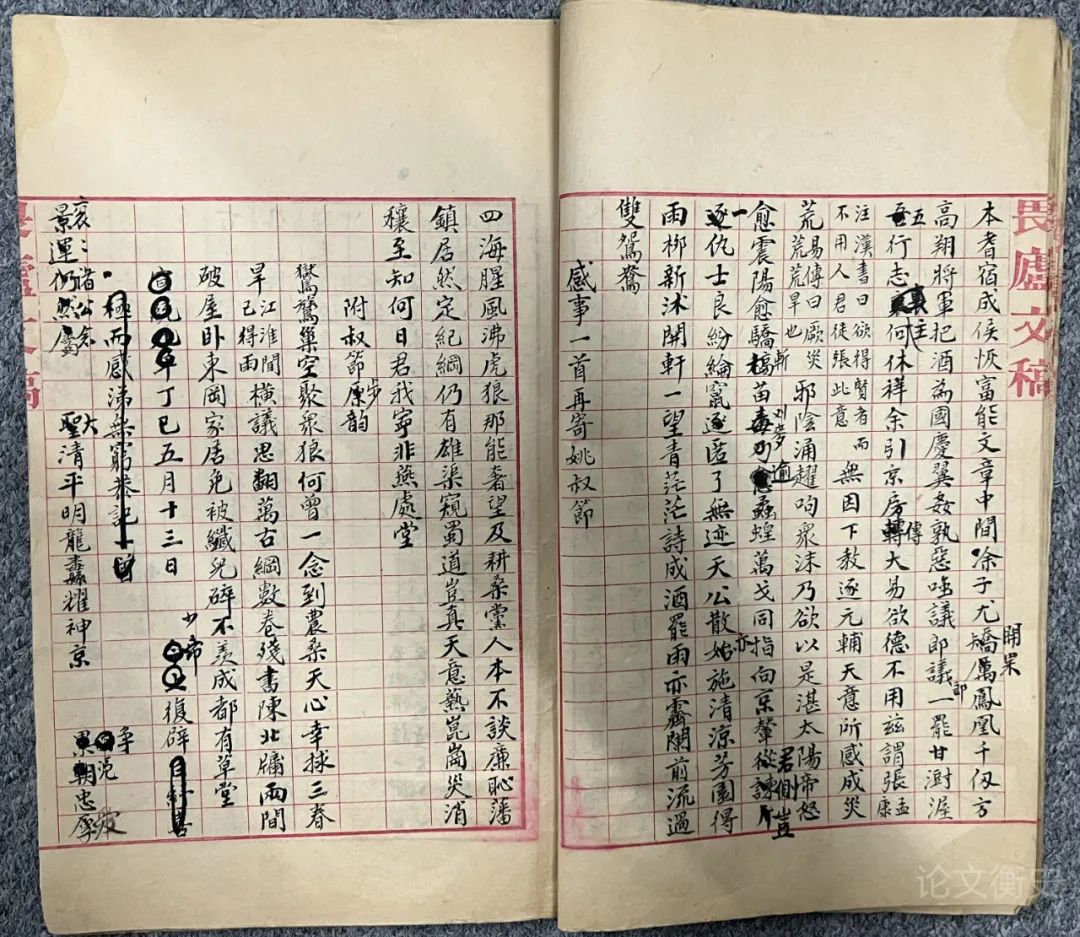 畏廬文稿
本耆宿成侯恢富能文章中間涂子尤矯厲鳳凰千仞方
開栗
高翔將軍把酒為國慶翼姦孰惡嗤議郎議一罷甘澍渥
郎
五行志主何休祥余引京房傳大易欲德不用茲謂張孟康
注漢書曰欲得賢者而
不用人君徒張此意 無因下教逐元輔天意所感成災
荒易傳曰厥災
荒荒旱也 邪陰涌趯呴眾沫乃欲以是湛太陽帝怒
愈震陽愈驕稿苗蟊蝗萬戈同指向京輦從諫豈
一仇士良紛綸竄逐匿了無迹天公散始施清涼芳園得
亦
雨柳新沐開軒一望青茫茫詩成酒罷雨亦霽闌前流過
雙鴛鴦
感事一首再寄姚叔節
四海腥風沸虎狼那能奢望及耕桑黨人本不談廉恥藩
鎮居然定紀綱仍有雄渠窺蜀道豈真天意爇崑崗災消
穰至知何日君我寧非燕處堂
附叔節步韵
獄驚巢空聚眾狼何曾一念到農桑天心幸捄三春
旱江淮間
已得雨橫議思翻萬古綱數卷殘書陳北牖兩間
破屋臥東岡家居免被纖兒碎不羨成都有草堂
丁巳五月十三日 少帝復辟
極而感涕無窮恭記
大聖清平明龍纛耀神京
哀哀諸公
景運仍然
忠